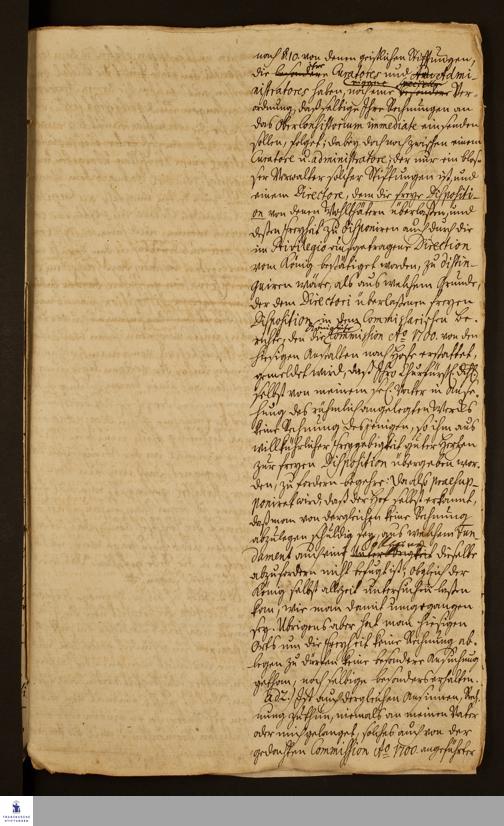 nach §10. von denen geistlichen Stiftungen,
die Curatores und Admi-
nistratores haben, noch eine Ver-
ordnung, daß selbige Ihre Rechnungen an
das Oberconsistorium immediate einsenden
sollen, folget; dabey doch noch zwischen einem
Curatore u. administratore, der nur ein blos-
ser Verwalter solcher Stiftungen ist, und
einem Directore, dem die freye Dispositi-
on von denen Wohlthätern überlaßen, und
deßen Freyheit zu disponiren auch durch die
im Privilegio eingetragene Direction
vom König bestätiget worden, zu distin-
guiren wäre, als aus welchem Grunde,
der dem Directori überlaßenen freyen
Disposition, in dem Commissarischen Be-
richte, den die Königliche Commission Ao 1700. von den
hiesigen Anstalten nach Hofe erstattet,
gemeldet wird, daß Ihro Churfürstl. Dhl.
selbst von meinem sel. Vater in Anse-
hung des rühmlich angelegten Wercks
keine Rechnung desjenigen, so ihm aus
willkührlicher Freygebigkeit guter Herzen
zur freyen Disposition übergeben wor-
den, zu fordern begehre: Da also praesup-
poniret wird, daß der Hof selbst erkannt,
daß man von dergleichen keine Rechnung
abzulegen schuldig sey, aus welchem Fun-
dament auch dieselbe
abzufordern nicht befugt ist; obgleich der
König selbst allezeit untersuchen laßen
kan, wie man damit umgegangen
sey. Übrigens aber hat man hiesigen
Orts um die Freyheit keine Rechnung ab-
legen zu dürfen keine besondere Ansuchung
gethan, noch selbige besonders erhalten.
Ad 2.) Ist auch dergleichen Ansinnen, Rech-
nung zu thun, niemals an meinen Vater
oder mich gelanget, solches auch von der
gedachten Commission Ao 1700. angeführter
FRANCKESCHE
STIFTUNGEN